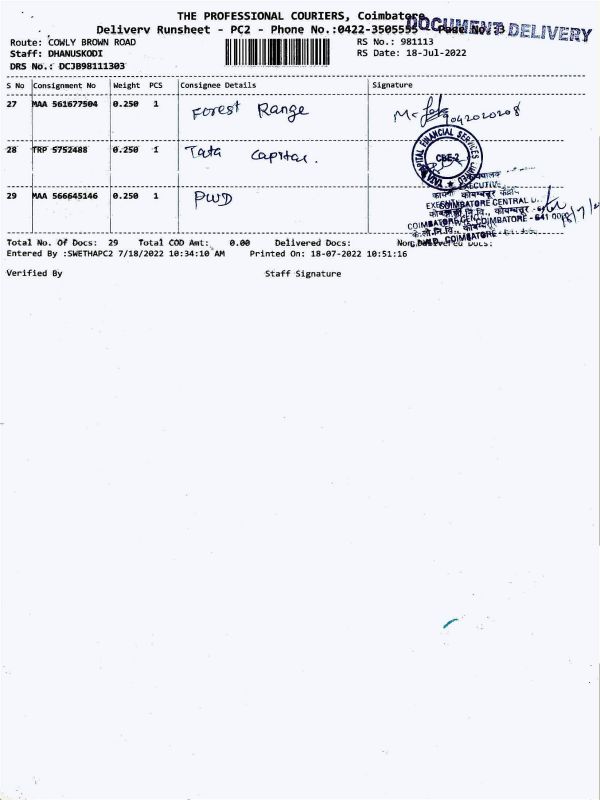 THE PROFESSIONAL COURIERS, Coimbatore
DOCUMENT DELIVERY
Delivery Runsheet - PC2 - Phone No.:0422-3505555
Route: COWLY BROWN ROAD RS No.: 981113
Staff: DHANUSKODI RS Date: 18-Jul-2022
DRS No.: DCJB98111303
S No Consignment No Weight PCS Consignee Details Signature
27 MAA 561677504 0.250 1 Forest Range
28 TRP 5752488 0.250 1 Tata Capital.
CBE-2
EXECUTIVE
COIMBATORE CENTRAL
29 MAA 566645146 0.250 1 PWD
COIMBATORE
Total No. Of Docs: 29 Total COD Amt: 0.00 Delivered Docs:
Entered By :SWETHAPC2 7/18/2022 10:34:10 AM Printed On: 18-07-2022 10:51:16
Verified By Staff Signature